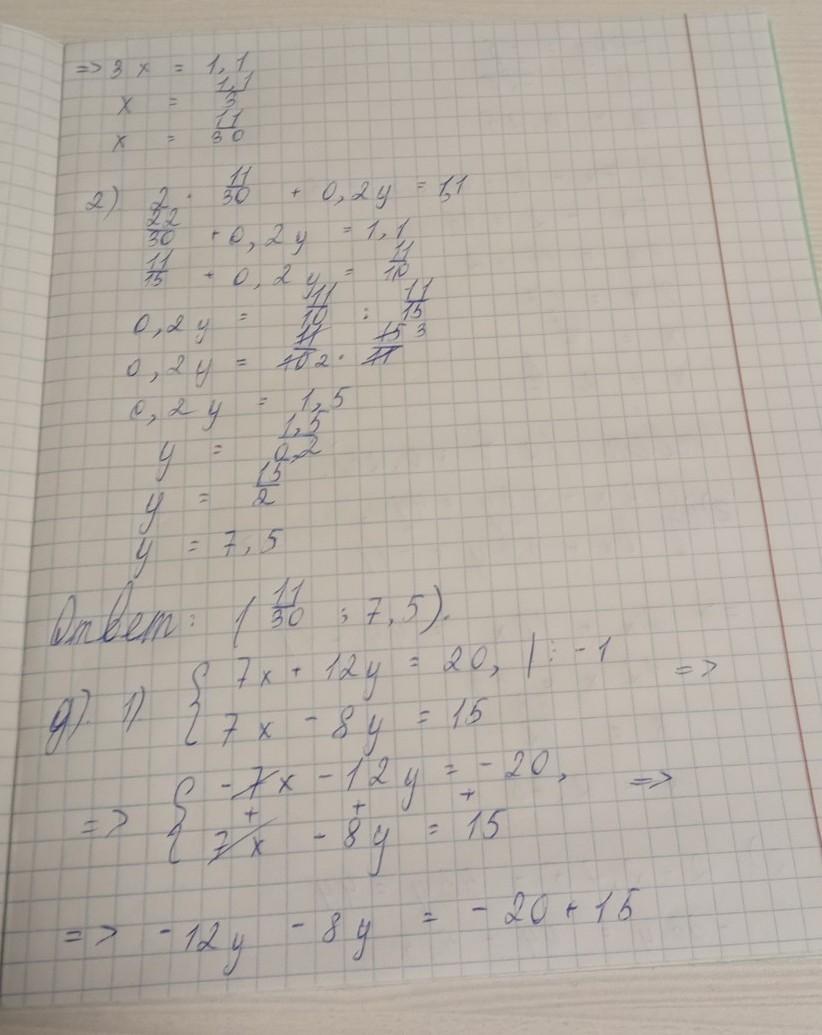 => 3x = 1,1
x = 1,1/3
x = 11/30
2) 2 · 11/30 + 0,2y = 1,1
22/30 + 0,2y = 1,1
11/15 + 0,2y = 11/10
0,2y = 11/10 : 11/15
0,2y = 11/10 2 · 15/11 3
0,2y = 1,5
y = 1,5/0,2
y = 15/2
y = 7,5
Ответ: (11/30 ; 7,5).
д). 1) { 7x + 12y = 20, | : -1 =>
7x - 8y = 15
=> { -7x - 12y = -20, =>
+ + +
7x - 8y = 15
=> -12y - 8y = -20 + 15